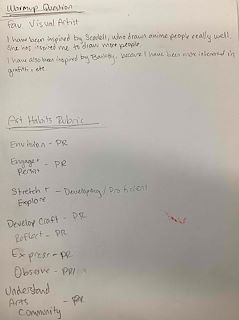 Warmup Question
fav Visual Artist
I have been inspired by Scadell, who draws anime people really well.
She has inspired me to draw more people.
I have also been inspired by Banksy, because I have been more interested in
graffiti, etc
Art Habits Rubric
Envision - PR
Engage + - PR
Persist
Stretch + - Developing / Proficient
Explore
Develop Craft - PR
Reflect - PR
Express - PR
Observe - PR
Understand
Arts - PR
Community